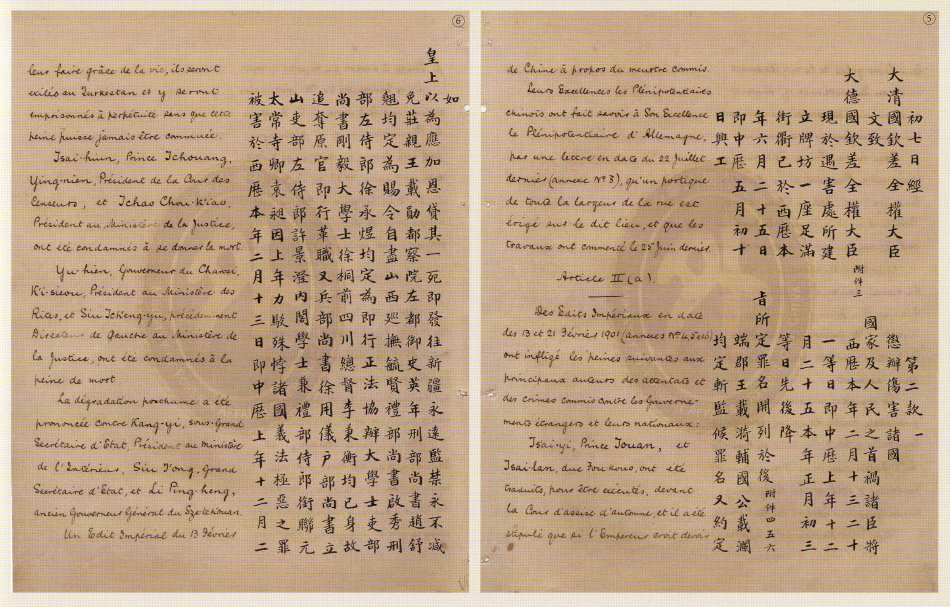 ⑤
de Chine à propos du meurtre commis.
Leurs Excellences les Plénipotentiaires
chinois ont fait savoir à Son Excellence
le Plénipotentiaire d'Allemagne,
par une lettre en date du 22 juillet
dernier (annexe No 3), qu'un portique
de toute la largeur de la rue est
érigé sur le dit lieu, et que les
travaux ont commencé le 25 juin dernier
Article II (a).
Des Edits Impériaux en date
des 13 et 21 Février 1901 (annexes Nos 4, 5 et 6)
ont infligé les peines suivantes aux
principaux auteurs des attentats et
des crimes commis contre les Gouverne-
ments étrangers et leurs nationaux:
Tsai-yi, Prince Touan, et
Tsai-lan, duc Fou-kouo, ont été
traduits, pour être exécutés, devant
la Cour d'assise d'automne, et il a été
stipulé que si l'Empereur croit devoir
初七日經
大清國欽差全權大臣
文致
大德國欽差全權大臣附件三
現於遇害處所建
立牌坊一座足滿
街衢已於西歷本
年六月二十五日
即中歷五月初十
日興工
第二款一
懲辦傷害諸國
國家及人民之首禍諸臣將
西歷本年二月十三二十
一等日即中歷上年十二
月二十五本年正月初三
等日先後降
旨所定罪名開列於後附件四五六
端郡王載漪輔國公載瀾
均定斬監候罪名又約定
⑥
leur faire grâce de la vie, ils seront
exilés au Turkestan et y seront
emprisonnés à perpétuité sans que cette
peine puisse jamais être commuée.
Tsai-hiun, Prince Tchouang,
Ying-nien, Président de la Cour des
Censeurs, et Tchao Chou-K'iao,
Président au Ministère de la Justice,
ont été condamnés à se donner la mort.
Yu-hien, Gouverneur du Chansi,
K'i-sieou, Président au Ministère des
Rites, et Siu Tcheng-yu, précédemment
Directeur de Gauche au Ministère de
la Justice, ont été condamnés à la
peine de mort
La dégradation posthume a été
prononcée contre Kang-yi, sous-Grand
Secrétaire d'Etat, Président au Ministère
de l'Intérieur, Siu T'ong, Grand
Secrétaire d'Etat, et Li Ping-heng,
ancien Gouverneur Général du Szetchouan.
Un Edit Impérial du 13 Février
如
皇上以為應加恩貸其一死即發往新疆永遠監禁永不減
免莊親王載勛都察院左都御史英年刑部尚書趙舒
翹均定為賜令自盡山西巡撫毓賢禮部尚書啟秀刑
部左侍郎徐承煜均定為即行正法協辦大學士吏部
尚書剛毅大學士徐桐前四川總督李秉衡均已身故
追奪原官即行革職又兵部尚書徐用儀戶部尚書立
山吏部左侍郎許景澄內閣學士兼禮部侍郎銜聯元
太常寺卿袁昶因上年力駁殊悖諸國義法極惡之罪
被害於西歷本年二月十三日即中歷上年十二月二